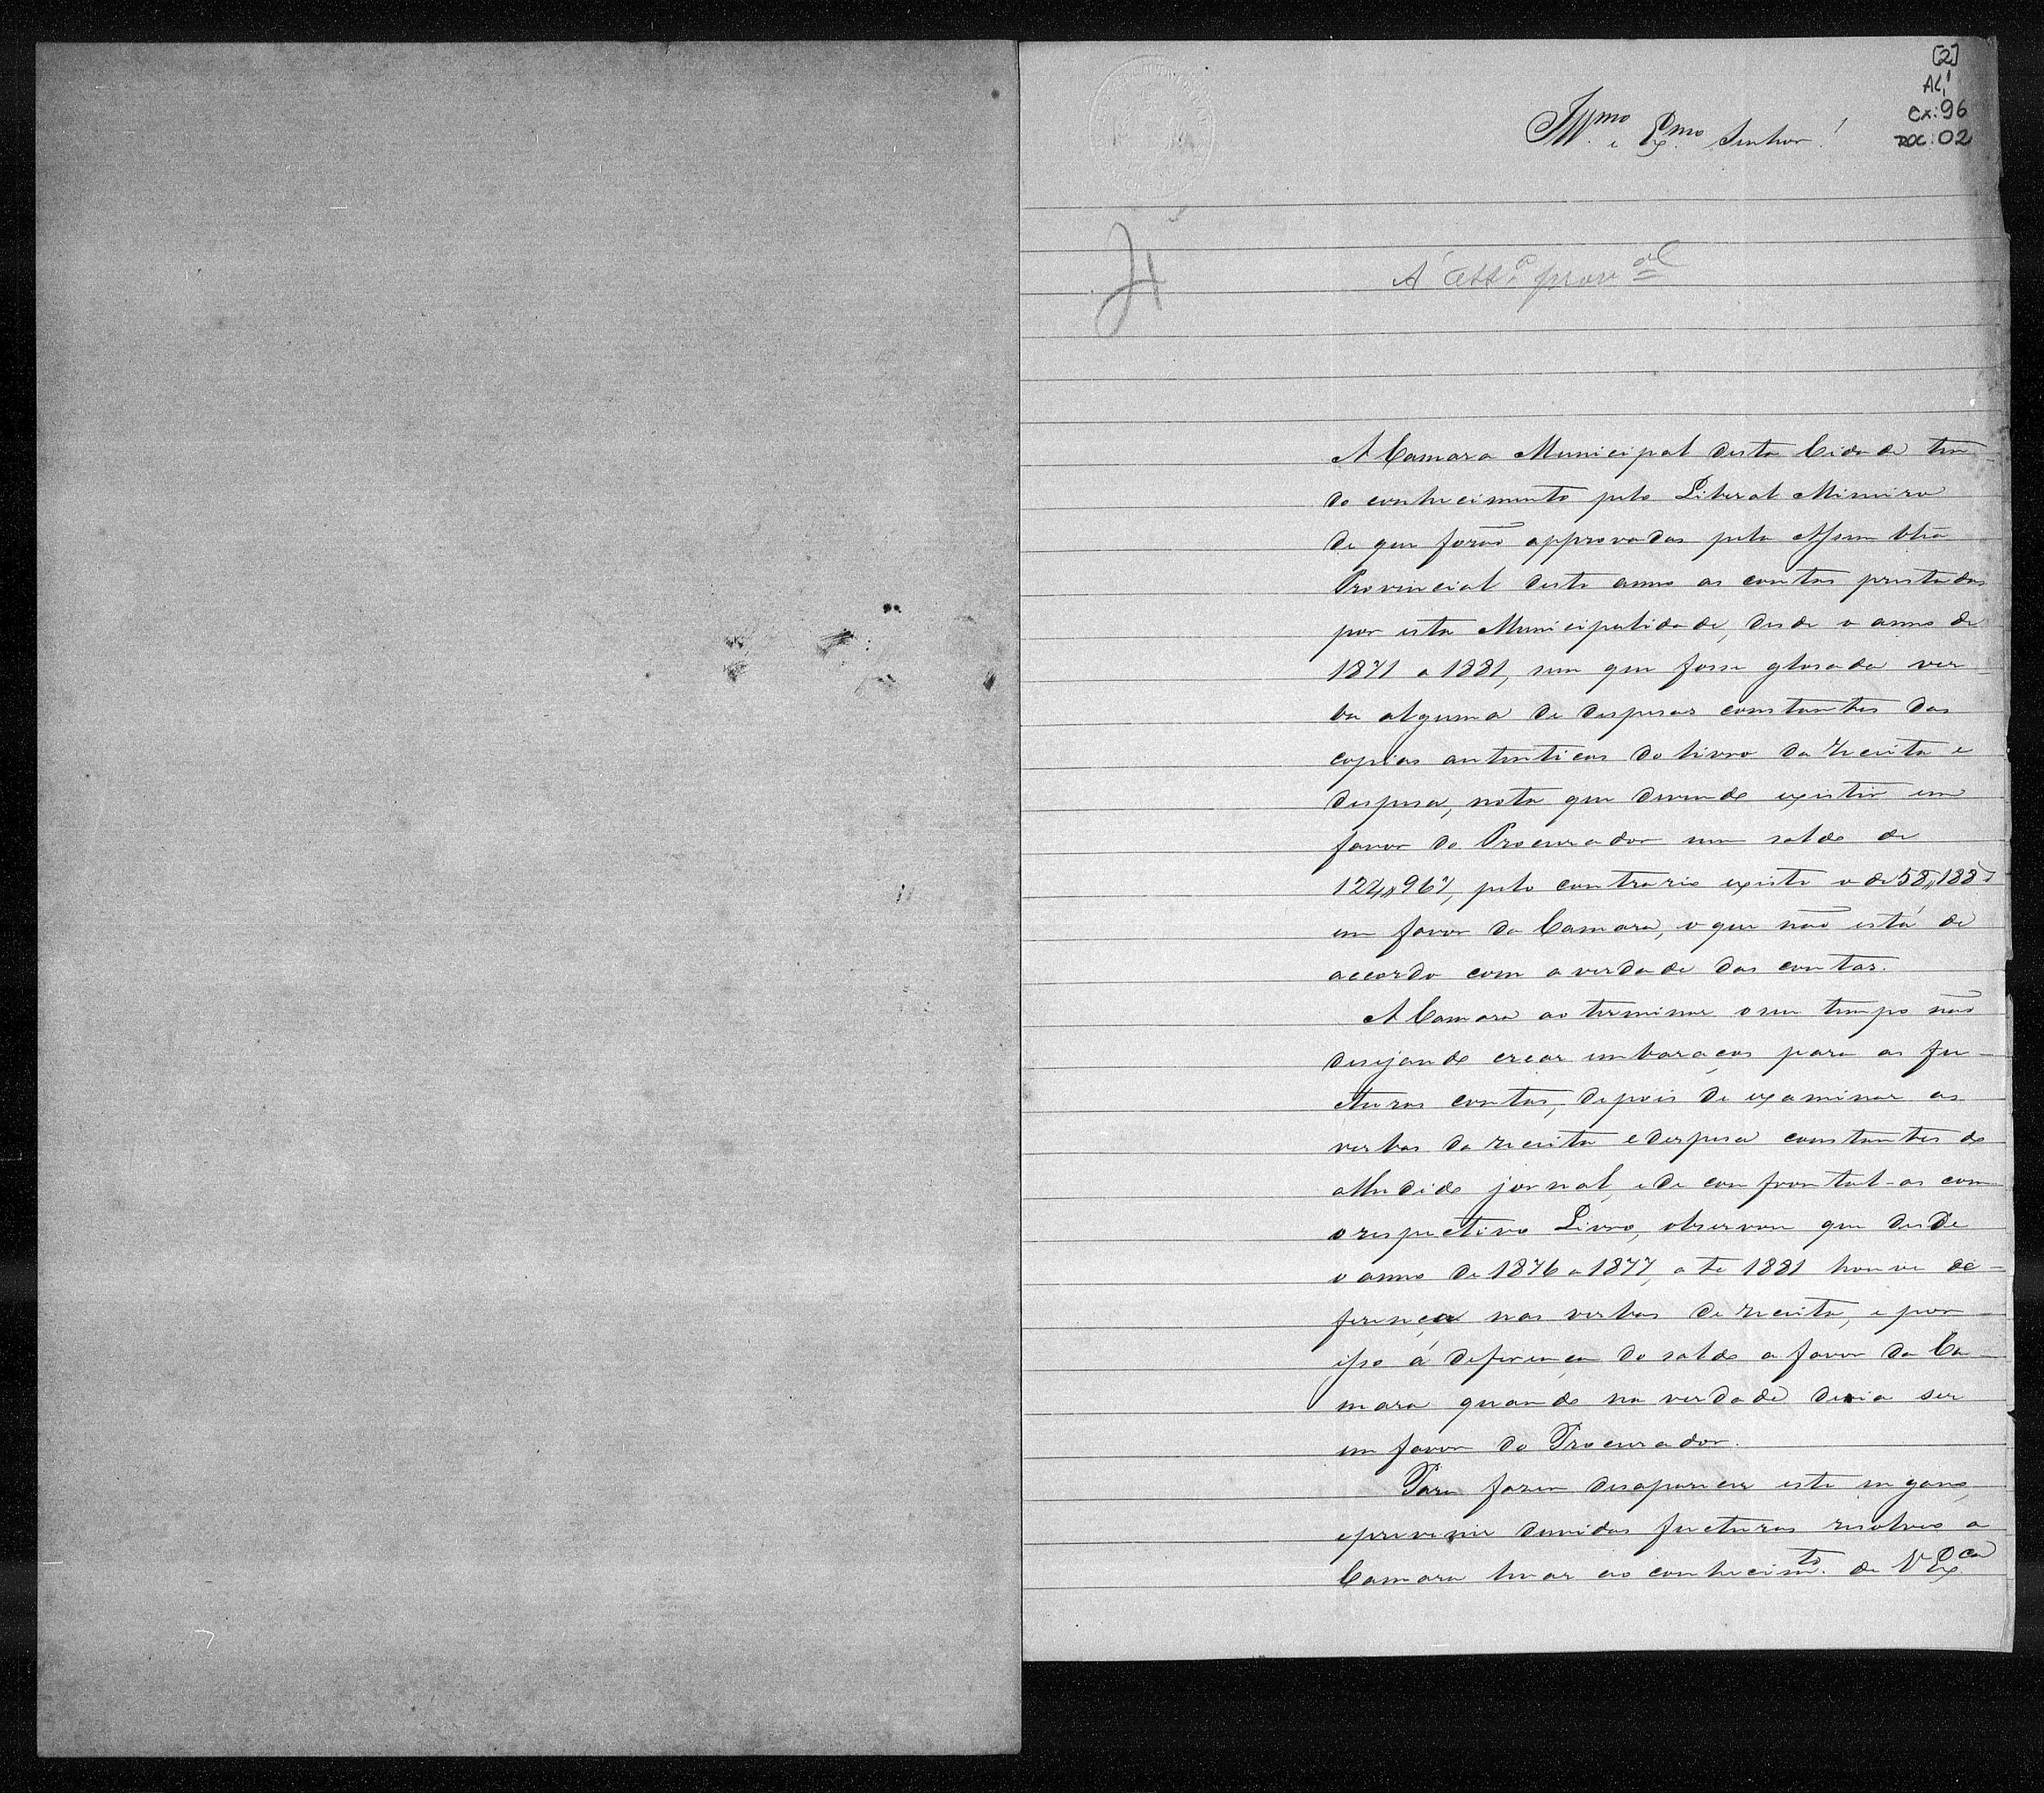 [2]
AL
Cx: 96
DOC: 02
Ill.mo e Ex.mo Senhor!
A' Ass.a prov.al
A Camara Municipal desta Cidade ten
do conhecimento pelo Liberal Mineiro
de que forão approvadas pela Assembléa
Provincial deste anno as contas prestadas
por esta Municipalidade, desde o anno de
1871 a 1881, sem que fosse glosada ver
ba alguma de despesas constantes das
copias autenticas do livro da receita e
despesa, nota que devendo existir em
favor do Procurador um saldo de
124,,967, pelo contrario existe o de 58,,188
em favor da Camara, o que não está de
accordo com a verdade das contas.
A Camara ao terminar o seu tempo não
desejando crear embaraços para as fu-
cturas contas, depois de examinar as
verbas da receita e despesa constantes do
alludido jornal, e de confrontal-as com
o respectivo Livro, observou que desde
o anno de 1876 a 1877, até 1881 houve de-
ferença nas verbas de receita, e por
isso á deferença do saldo a favor da Ca
mara quando na verdade devia ser
em favor do Procurador.
Para fazer desaparecer este engano,
e prevenir duvidas fucturas resolveo a
Camara levar ao conhecim.to de V Ex.ca